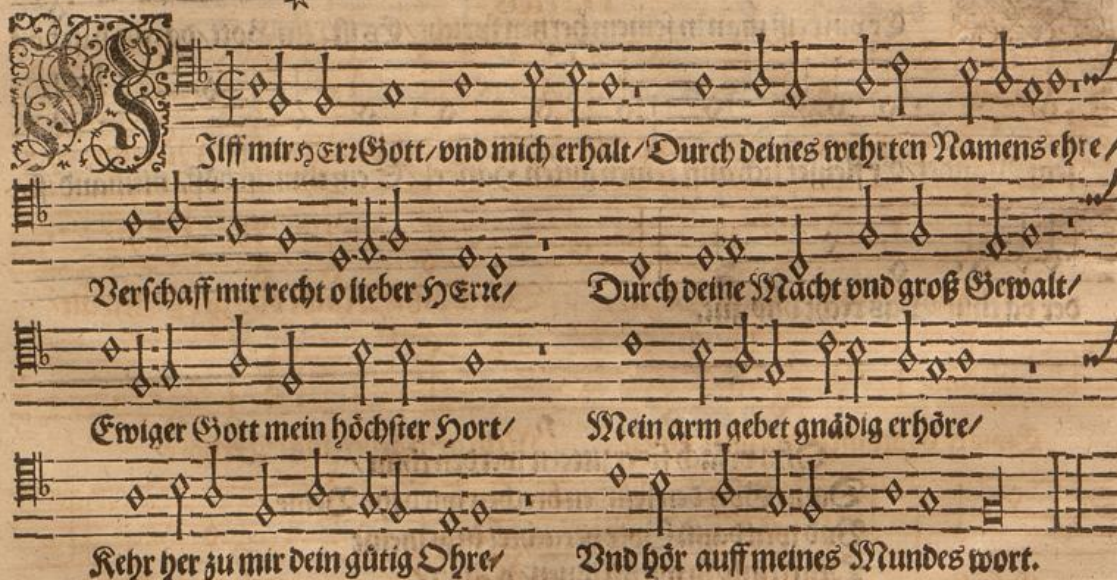 HJlff mir HErr Gott/ vnd mich erhalt/ Durch deines wehrten Namens ehre/
Verschaff mir recht o lieber HErre/ Durch deine Macht vnd groß Gewalt/
Ewiger Gott mein höchster Hort/ Mein arm gebet gnädig erhöre/
Kehr her zu mir dein gütig Ohre/ Vnd hör auff meines Mundes wort.